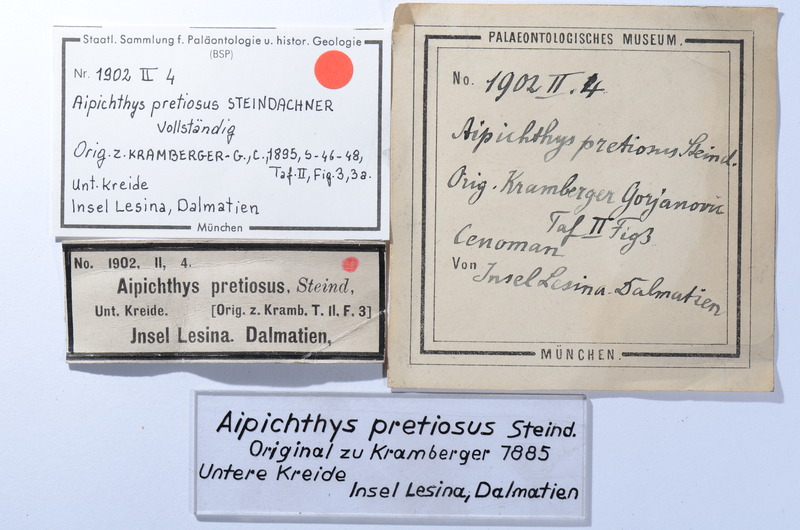 Staatl. Sammlung f. Paläontologie u. histor. Geologie
(BSP)
Nr. 1902 II 4
Aipichthys pretiosus STEINDACHNER
Vollständig
Orig. z. KRAMBERGER-G., C., 1895, S-46-48,
Taf. II, Fig. 3, 3a.
Unt. Kreide
Insel Lesina, Dalmatien
München
PALAEONTOLOGISCHES MUSEUM.
No. 1902 II. 4
Aipichthys pretiosus Steind.
Orig. Kramberger Gorjanovic
Taf II Fig 3
Cenoman
Von Insel Lesina. Dalmatien
MÜNCHEN.
No. 1902, II, 4.
Aipichthys pretiosus, Steind,
Unt. Kreide. [Orig. z. Kramb. T. II. F. 3]
Jnsel Lesina. Dalmatien,
Aipichthys pretiosus Steind.
Original zu Kramberger 7885
Untere Kreide
Insel Lesina, Dalmatien